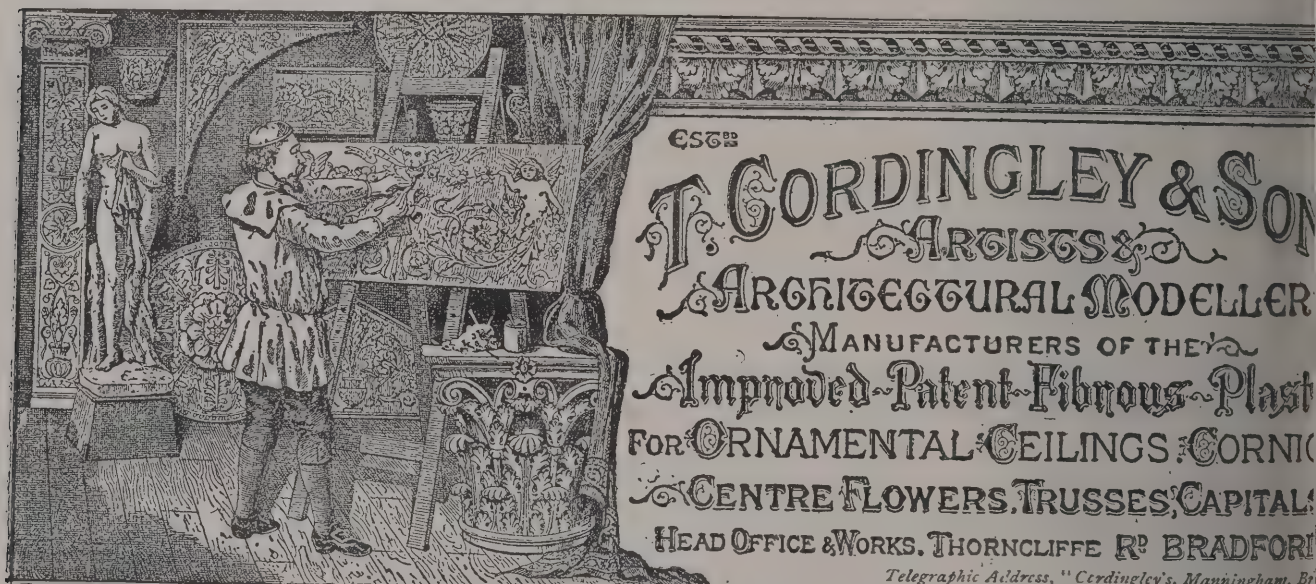 ESTBD
T. CORDINGLEY & SON
ARTISTS &
ARCHITECTURAL MODELLER
MANUFACTURERS OF THE
Improved Patent Fibrous Plast
FOR ORNAMENTAL CEILINGS. CORNIC
CENTRE FLOWERS, TRUSSES, CAPITAL
HEAD OFFICE & WORKS. THORNCLIFFE RD BRADFORD
Telegraphic Address, "Cordingley's, Manningham, B